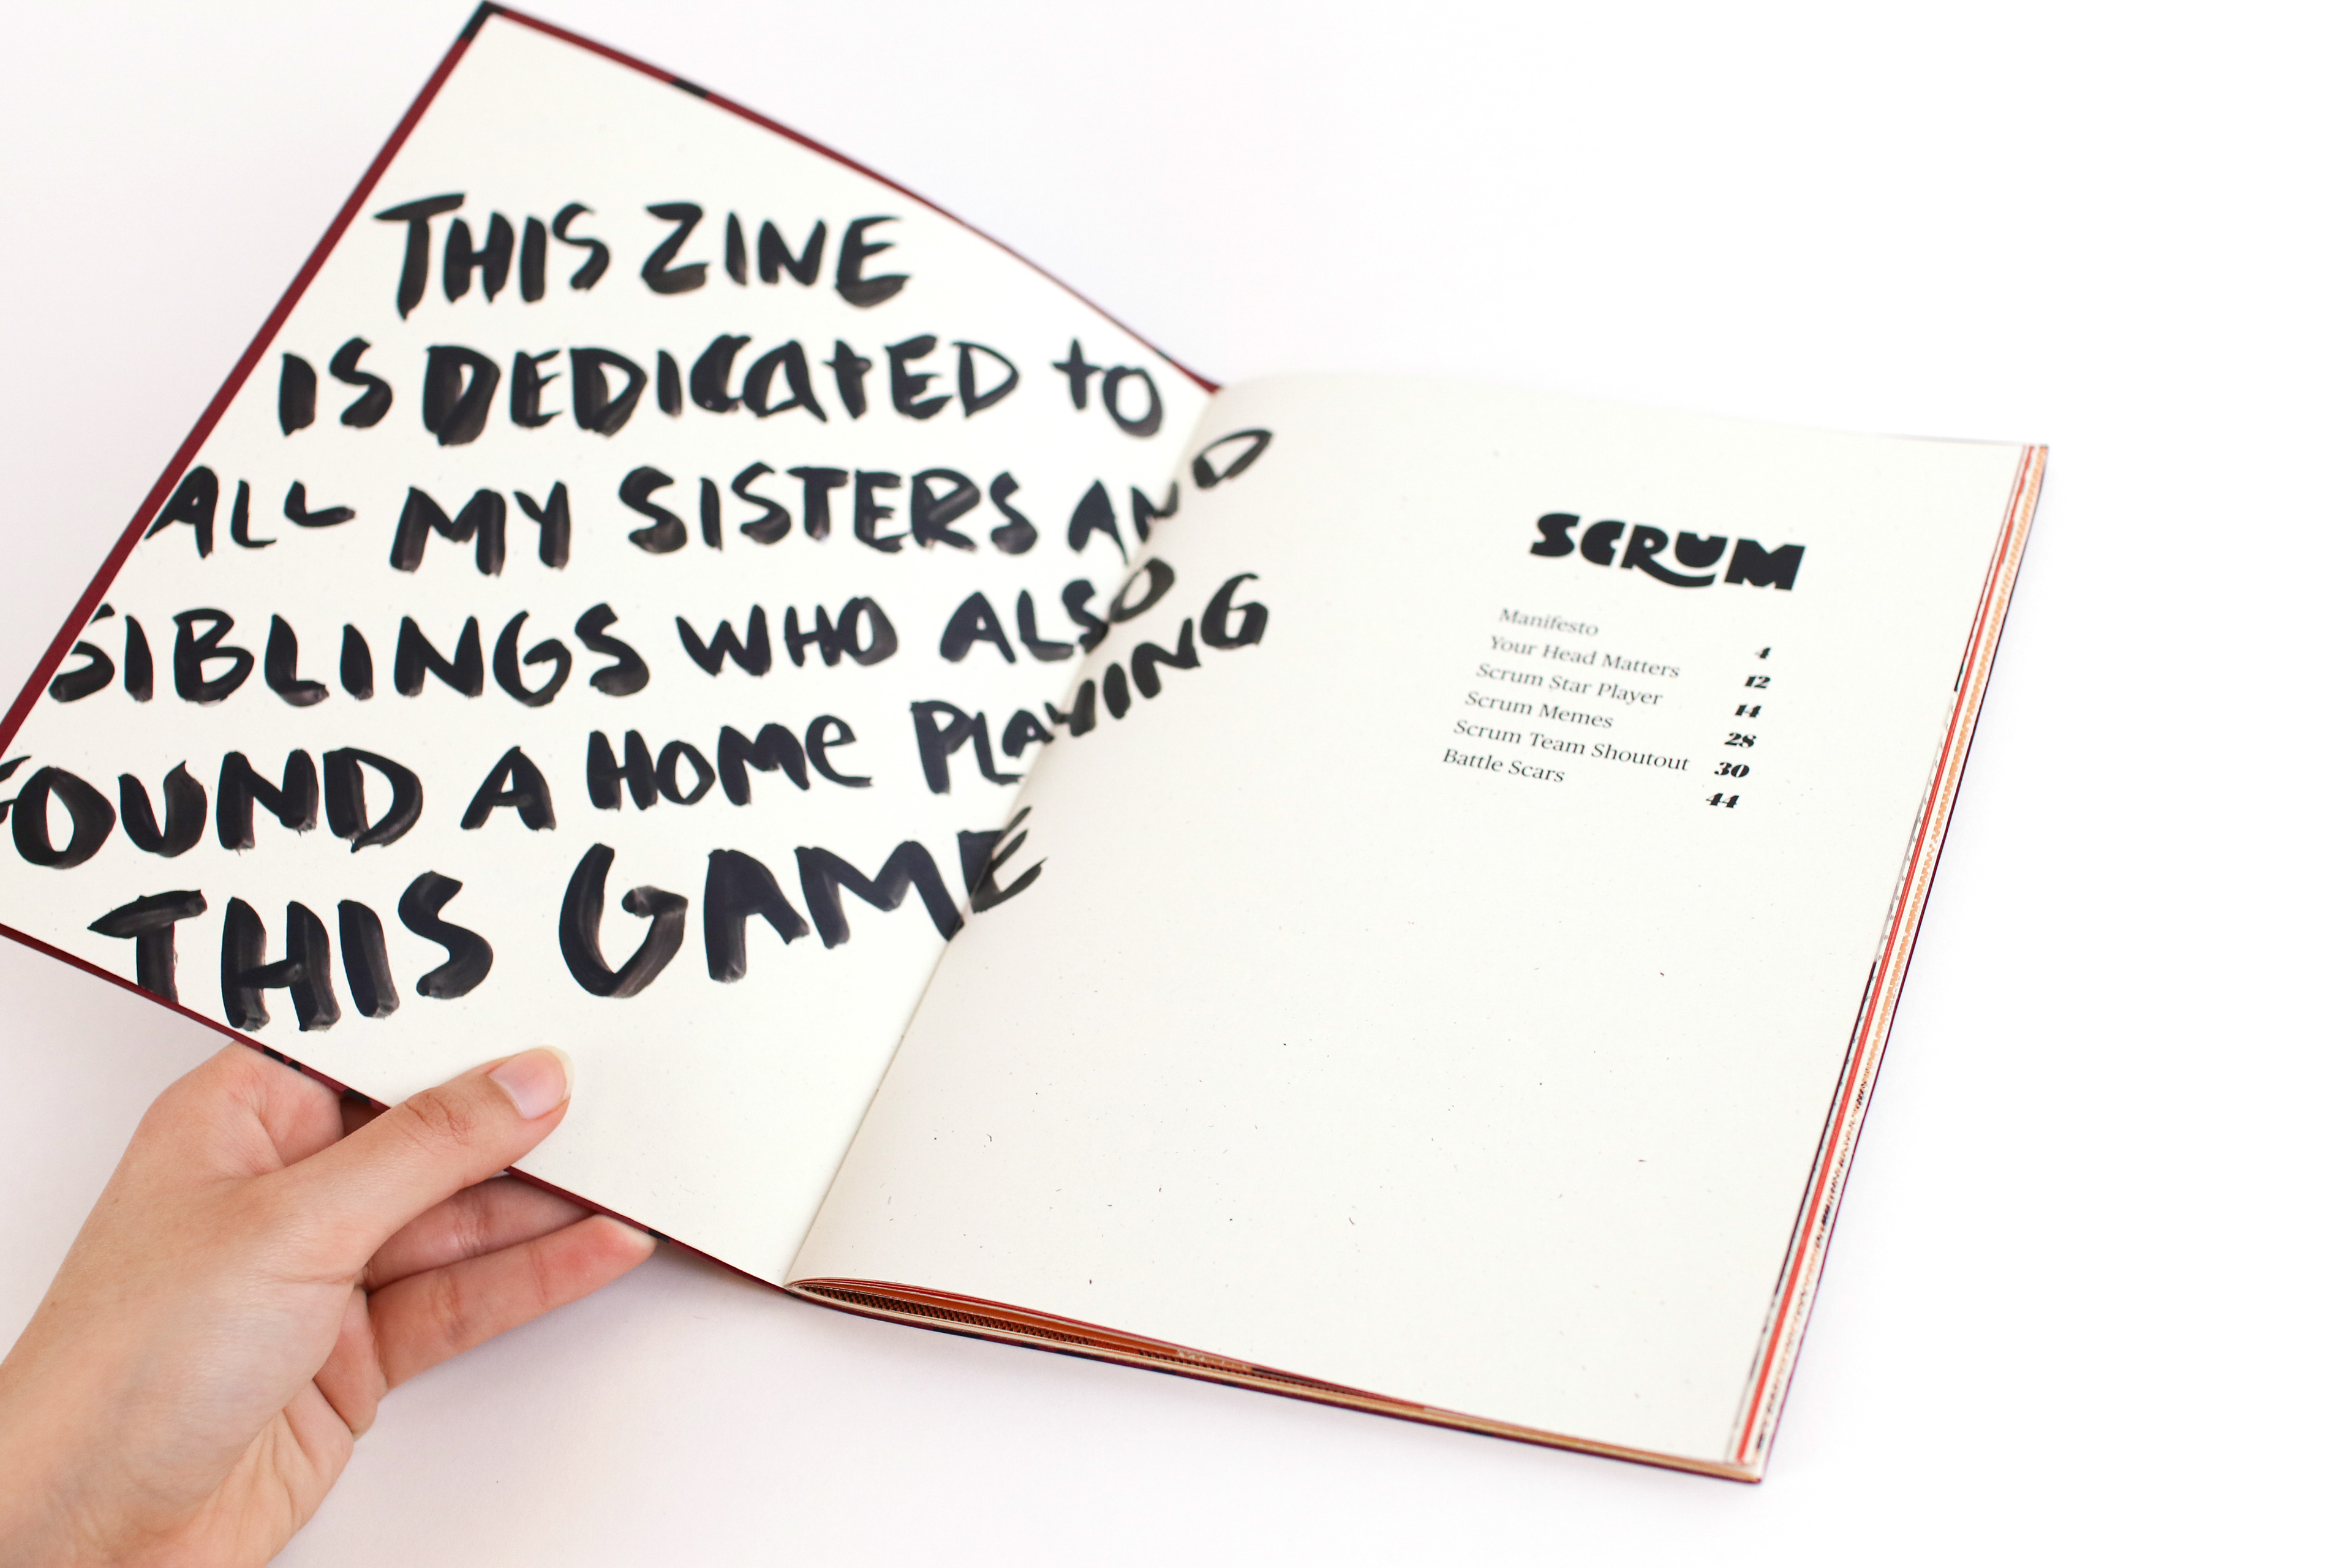 THIS ZINE
IS DEDICATED TO
ALL MY SISTERS AND
SIBLINGS WHO ALSO
FOUND A HOME PLAYING
THIS GAME
SCRUM
Manifesto 4
Your Head Matters 12
Scrum Star Player 14
Scrum Memes 28
Scrum Team Shoutout 30
Battle Scars 44